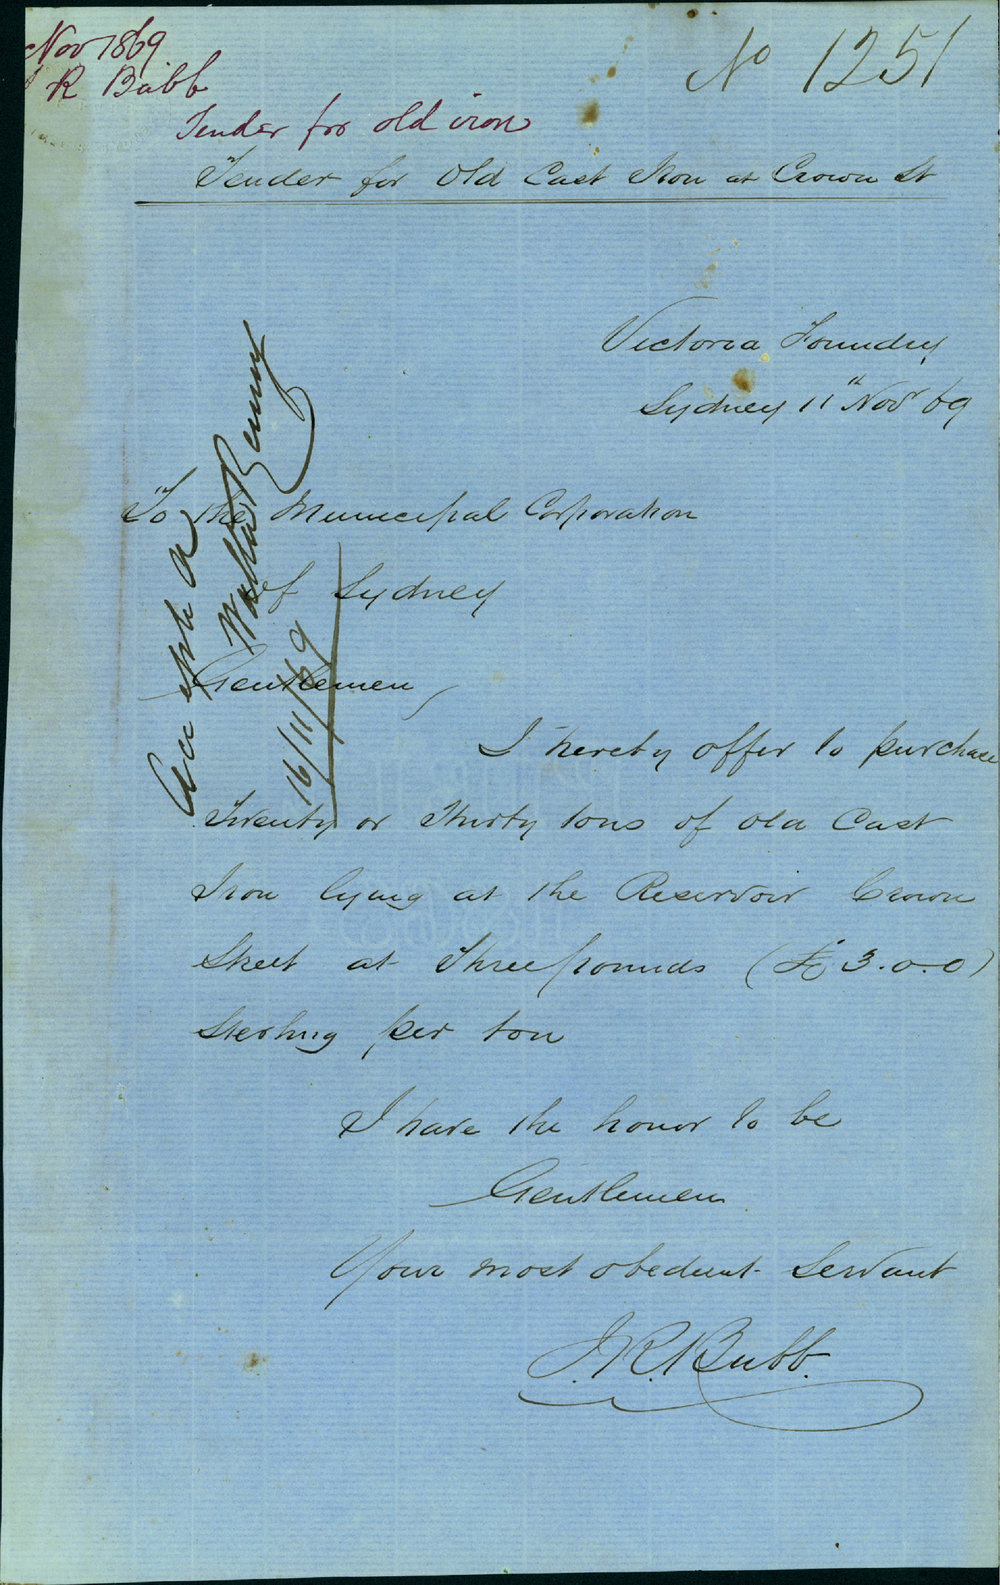 Nov 1869
R Bubb
Tender for old iron
No 1251
Tender for Old Cast Iron at Crown St
Victoria Foundry
Sydney 11th Nov 69
To the Municipal Corporation
of Sydney
Gentlemen,
I hereby offer to purchase
Twenty or Thirty tons of old Cast
Iron lying at the Reservoir Crown
Street at Three pounds (£3.0.0)
Sterling per ton
I have the honor to be
Gentlemen
Your most obedient Servant
J. R. Bubb.
Walter Renny
16/11/69